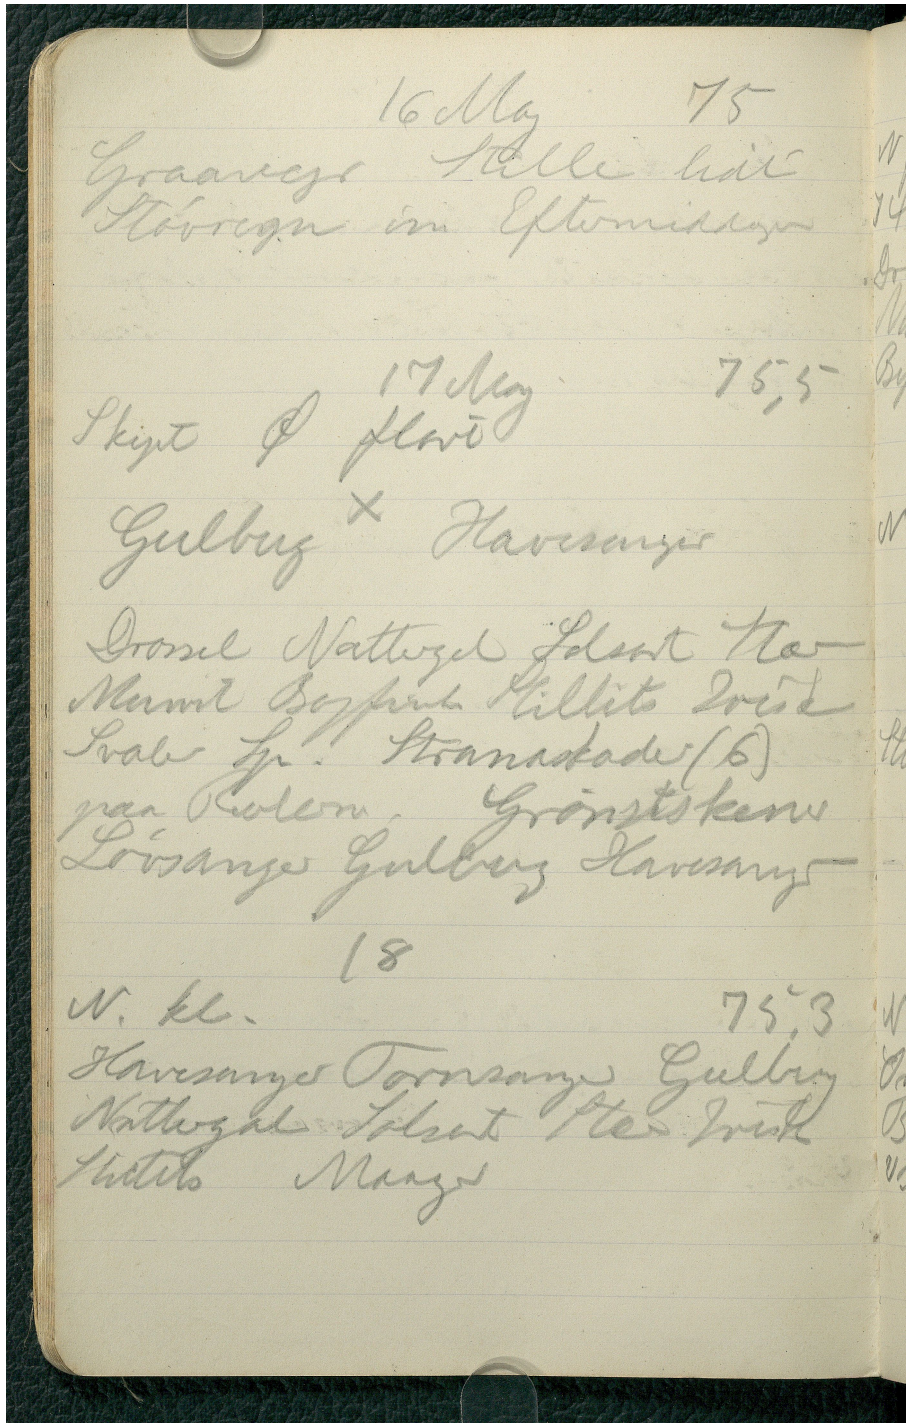 16 May 75
Graavejr Stille lidt
Støvregn om Eftermiddagen
17 May 75,5
Skyet Ø flovt
Gulbug x Havesanger
Drossel Nattergal Solsort Stær
Munk Bogfink Stillits Irisk
Svaler Sp. Strandskader (6)
paa Revlerne. Grønsiskener
Løvsanger Gulbug Havesanger
18
N. kl. 75,3
Havesanger Tornsanger Gulbug
Nattergal Solsort Stær Irisk
Stillits Maager